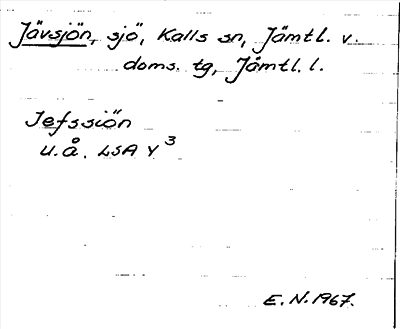 Jävsjön, sjö, Kalls sn, Jämtl. v.
doms. tg, Jämtl. l.
Jefssiön
u.å. LSA Y 3
E. N. 1967.